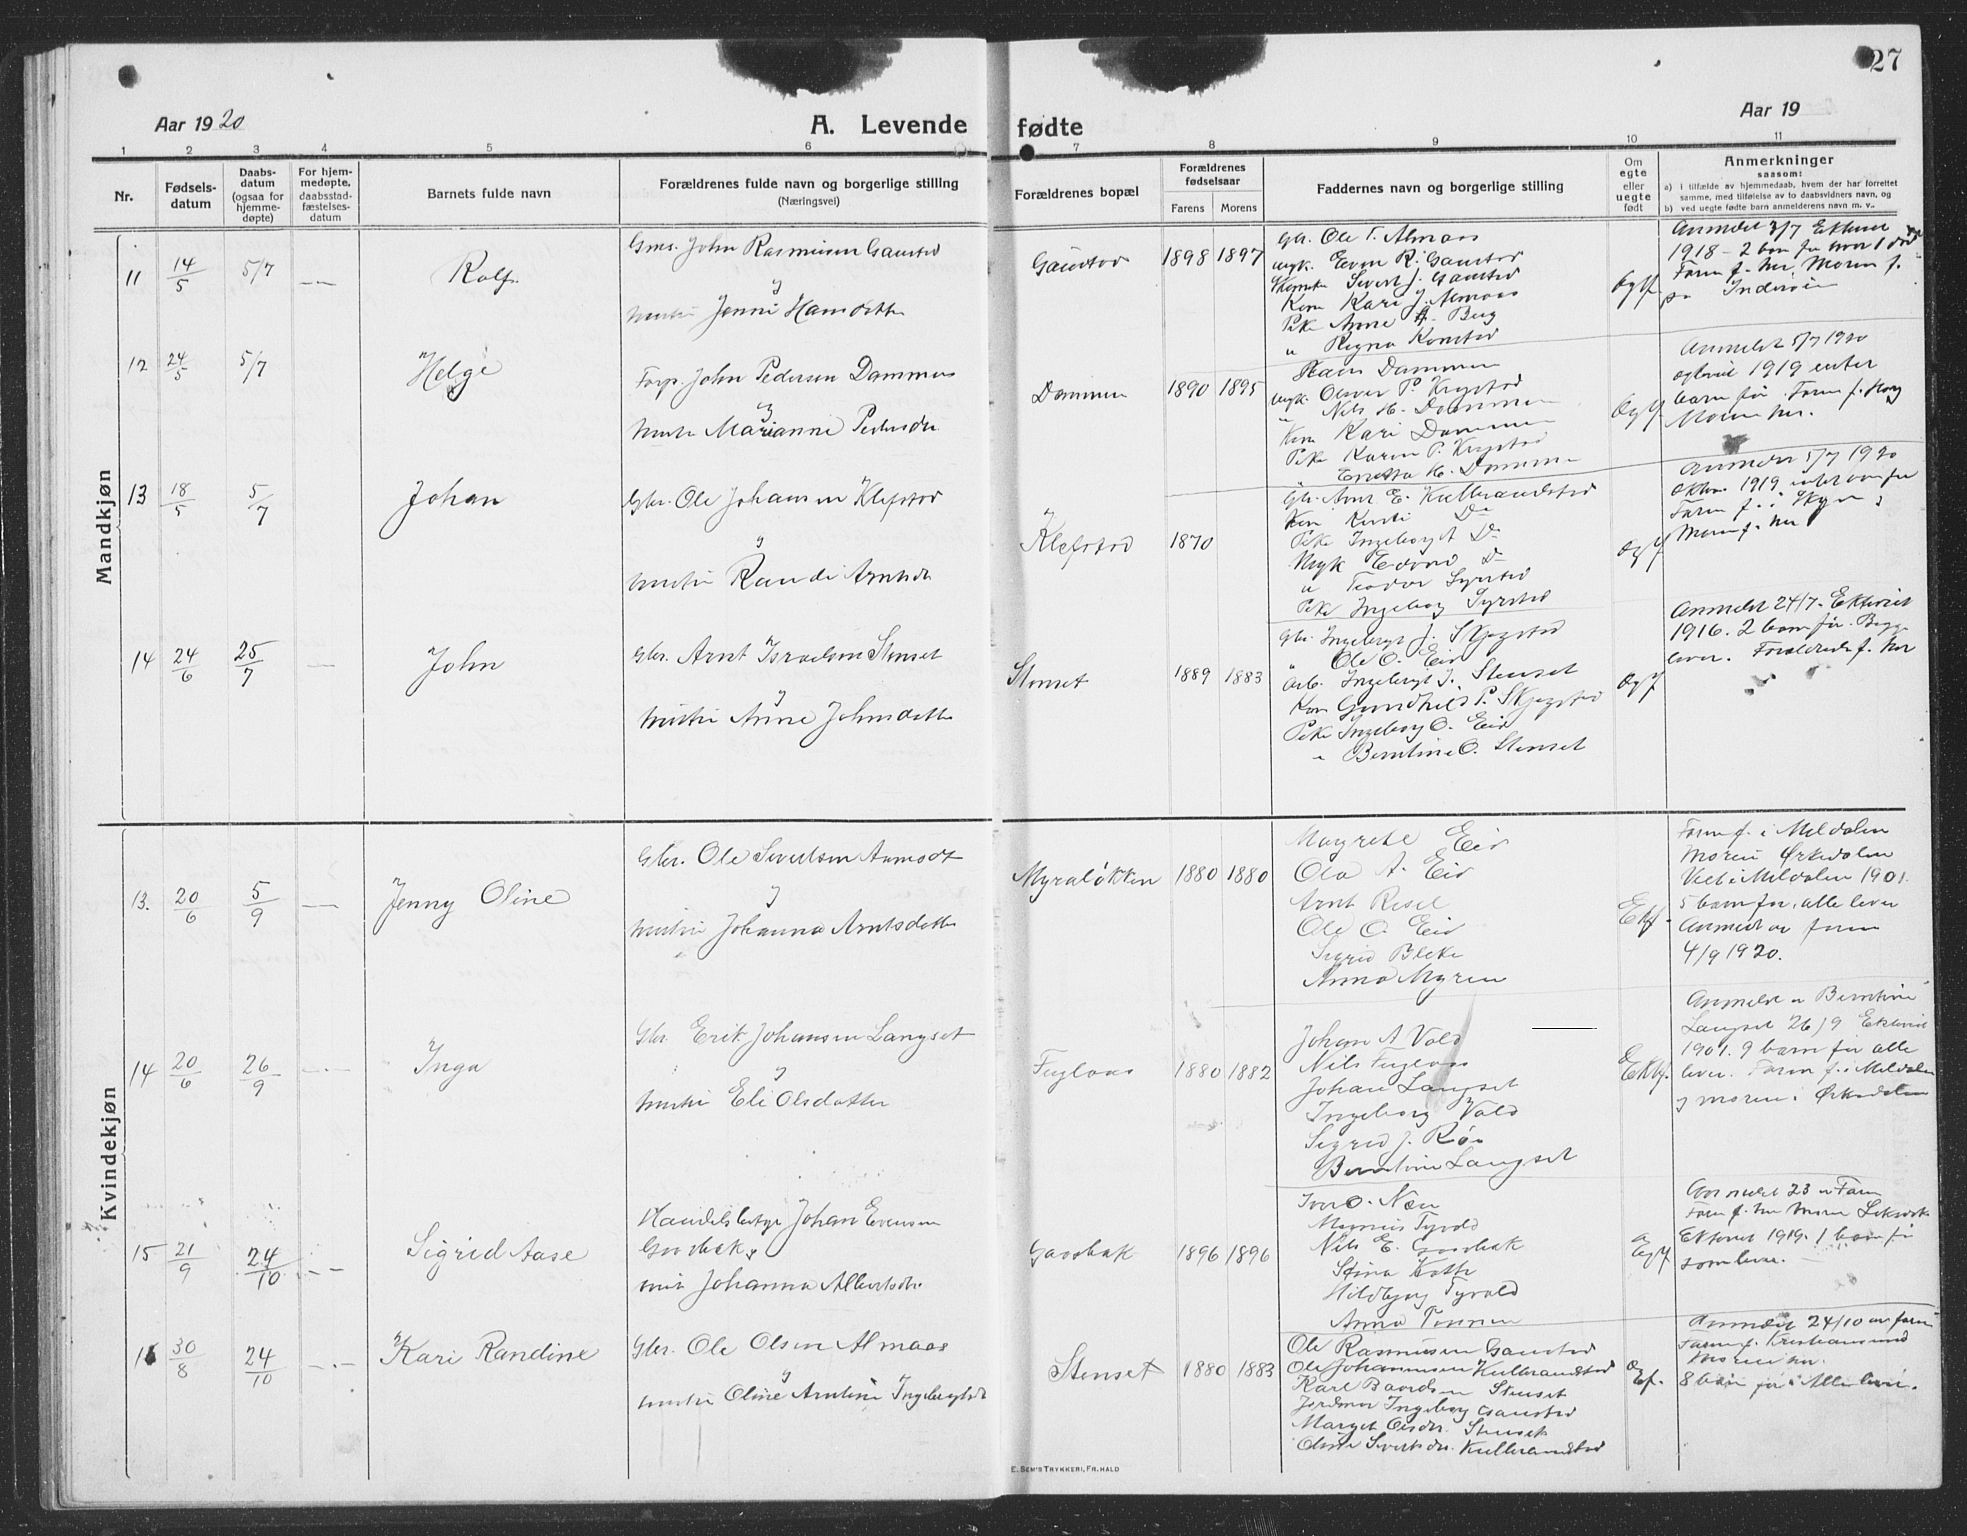 27
Aar 1920
A. Levende fødte
Aar 19
1 2 3 4 5 6 7 8 9 10 11
Nr.
Fødsels-
datum
Daabs-
datum
(ogsaa for
hjemme-
døpte)
For hjem-
medøpte,
daabsstad-
fæstelses-
datum
Barnets fulde navn
Forældrenes fulde navn og borgerlige stilling
(Næringsvei)
Forældrenes bopæl
Forældrenes
fødselsaar
Farens Morens
Faddernes navn og borgerlige stilling
Om
egte
eller
uegte
født
Anmerkninger
saasom:
a) i tilfælde av hjemmedaab, hvem der har forrettet
samme, med tilføielse av to daabsvidners navn, og
b) ved uegte fødte barn anmelderens navn m. v..
Mandkjøn
11 14/5 5/7 — Rolf
Gms. John Rasmussen Gaustad
y
hustru Jenni Hansdatter
Gaustad 1898 1897
Gbr. Ole T. Almaas
Ungk. Even R. Gaustad
Sivert J. Gaustad
Kone Kari J. Almaas
Pike Anne A. Berg
" Regna Konstad
Egtf.
Anmeldt 3/7 Ekteviet
1918 - 2 barn før hvor 1 død
Faren f. her, Moren f.
på Inderøien
12 24/5 5/7 Helge
Forp. John Pedersen Dammen
y
hustru Marianne Pedersdtr
Dammen 1890 1895
Hans Dammen
Ungk. Oliver P. Krogstad
" Nils H. Dammen
Kone Kari Dammen
Pike Karen P. Krogstad
H. Dammen
Egtf.
Anmeldt 5/7 1920
egteviet 1919 enter
barn før. Faren f.
Moren her.
13 18/5 5/7 Johan
Gbr. Ole Johansen Klefstad
y
hustru Randi Arntsdtr
Klefstad 1870
Gbr. Arnt E. Kulbrandstad
Kone Kirsti Do
Pike Ingeborg A Do
Ungk Edvard Do
" Teodor Syrstad
Pike Ingeborg Syrstad
Egtf
Anmeldt 5/7 1920
Ektev. 1919 intet barn før
Faren f. i
Moren f. her
14 24/6 25/7 — John
Gbr. Arnt Israelsen Stenset
y
hustru Anne Johnsdatter
Stenset 1889 1883
Gbr. Ingebrigt J. Skjegstad
" Ole O. Eid
Arb. Ingebrigt I. Stenset
Kone Gundhild P. Skjegstad
Pike Ingeborg O. Eid
" Berntine O. Stenset
Egtf
Anmeldt 24/7. Ekteviet
1916. 2 barn før. Begge
lever. Forældrene f. her
Kvindekjøn
13. 20/6 5/9 — Jenny Oline
Gbr. Ole Sivertsen Aamodt
y
hustru Johanna Arntsdatter
Myraløkken 1880 1880
Margrete Eid
Ola A. Eid
Arnt Resel
Ole O. Eid
Sigrid Bleke
Anna Myren
Ektf.
Faren f. i Meldalen
Moren i Ørkedalen
Viet i Meldalen 1901.
5 barn før, alle lever
Anmeldt av faren
4/9 1920.
14 20/6 26/9 — Inga
Gbr. Erik Johansen Langset
y
hustru Eli Olsdatter
Fuglaas 1880 1882
Johan A Vold
Nils Fuglaas
Johan Langset
Ingeborg Vold
Sigrid J. Røe
Berntine Langset
Ektf.
Anmeldt av Berntine
Langset 26/9 Ekteviet
1901. 9 barn før alle
lever. Faren f. i Meldalen
y moren i Ørkedalen
15 21/9 24/10 — Sigrid Aase
Handelsbetj. Johan Evensen
Gaasbak y
hust. Johanna Albertsdtr.
Gaasbak 1896 1896
Iver O. Næn
Magnus Tyvold
Nils E. Gaasbak
Stina Kotte
Hildbjørg Tyvold
Anna
Egtf
Anmeldt 23 av Faren
Faren f. her Moren Leksvik
Ekteviet 1919. 1 barn før
som lever.
16 30/8 24/10 — Kari Randine
Gbr. Ole Olsen Almaas
y
hustru Oline Arntine Ingebrigtsdtr
Stenset 1880 1883
Ole Rasmussen Gaustad
Ole Johannesen Kulbrandstad
Karl Baardsen Stenset
Jordmor Ingeborg Gaustad
Marget Olsdtr. Stenset
Oline Sivertsdtr. Kulbrandstad
Egf.
Anmeldt 24/10 av faren
Faren f. Kristiansund
Moren her.
8 barn før. Alle lever.
E. Sem's Trykkeri, Fr.hald